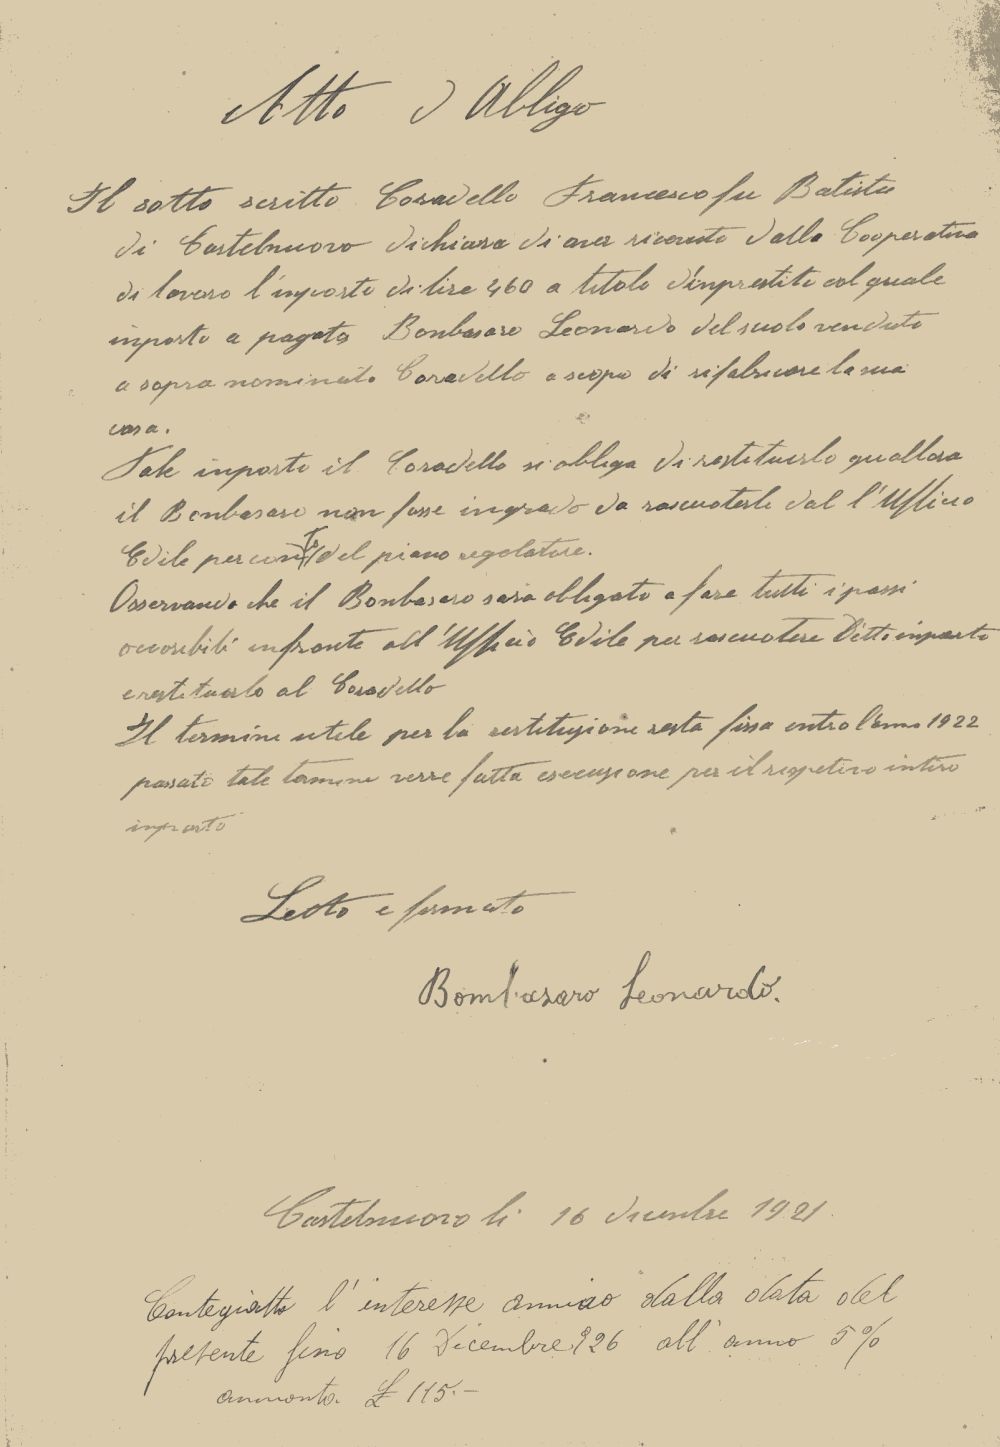 Atto d Abligo
Il sotto scritto Coradello Francesco fu Batista
di Castelnuovo dichiara di aver ricevuto dalla Cooperativa
di lavoro l'inporto di lire 460 a titolo d'inprestito col quale
inporto a pagato Bonbasaro Leonardo del suolo venduto
a sopra nominato Coradello a scopo di rifabricare la sua
casa.
Tale inporto il Coradello si obliga di restituirlo quallora
il Bonbasaro non fosse ingrado da rascuoterlo dal l'Ufficio
Edile per del piano regolatore.
Osservando che il Bonbasaro sara obbligato a fare tutti i passi
infronte all'Ufficio Edile per rascuotere Ditto inporto
e restituirlo al Coradello
Il termine utile per la restituzione resta fissa entro l'anno 1922
passato tale termine verre fatta esecuzione per il rispetivo intiro
inporto
Letto e firmato
Bombasaro Leonardo.
Castelnuovo li 16 dicembre 1921
Contegiatto l'interesse annuao dalla data del
presente fino 16 Dicembre 926 all'anno 5%
ammonta. £ 115.-